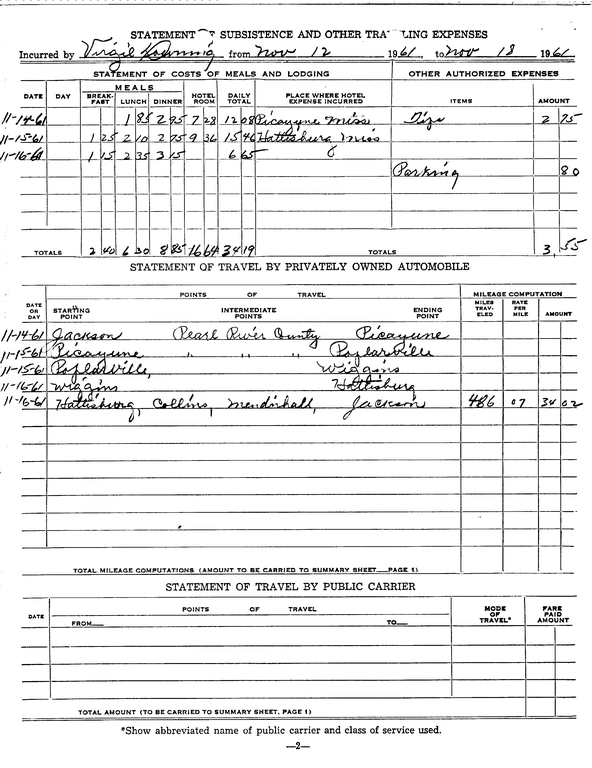 STATEMENT OF SUBSISTENCE AND OTHER TRA LING EXPENSES
Incurred by Virgil from Nov 12 1961, to Nov 18 1961
STATEMENT OF COSTS OF MEALS AND LODGING OTHER AUTHORIZED EXPENSES
DATE DAY MEALS BREAK-FAST LUNCH DINNER HOTEL ROOM DAILY TOTAL PLACE WHERE HOTEL EXPENSE INCURRED ITEMS AMOUNT
11-14-61 1 85 2 95 7 28 12 08 Picayune Miss Tips 2 75
11-15-61 1 25 2 10 2 75 9 36 15 46 Hattisburg Miss
11-16-61 1 15 2 35 3 15 6 65
Parking 80
TOTALS 2 40 6 30 8 85 16 64 34 19 TOTALS 3,55
STATEMENT OF TRAVEL BY PRIVATELY OWNED AUTOMOBILE
DATE OR DAY POINTS OF TRAVEL MILEAGE COMPUTATION
STARTING POINT INTERMEDIATE POINTS ENDING POINT MILES TRAV-ELED RATE PER MILE AMOUNT
11-14-61 Jackson Pearl River County Picayune
11-15-61 Picayune " " " Poplarville
11-15-61 Poplarville, Wiggins
11-16-61 Wiggins Hattisburg
11-16-61 Hattisburg, Collins, Mendinhall, Jackson 486 07 34 02
TOTAL MILEAGE COMPUTATIONS (AMOUNT TO BE CARRIED TO SUMMARY SHEET PAGE 1)
STATEMENT OF TRAVEL BY PUBLIC CARRIER
DATE POINTS OF TRAVEL MODE OF TRAVEL* FARE PAID AMOUNT
FROM TO
TOTAL AMOUNT (TO BE CARRIED TO SUMMARY SHEET, PAGE 1)
*Show abbreviated name of public carrier and class of service used.
—2—